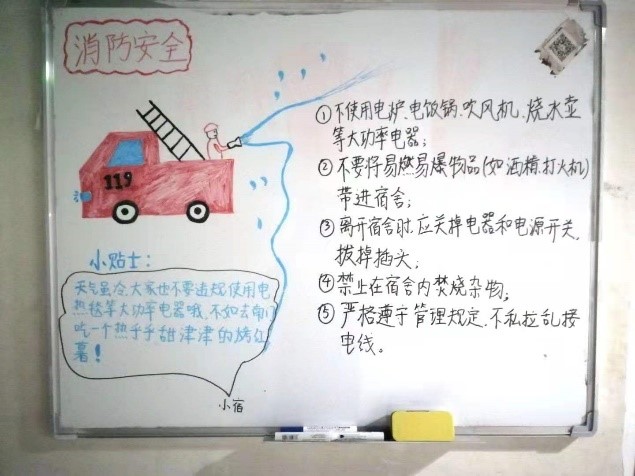 消防安全
119
小贴士：
天气虽冷，大家也不要违规使用电
热毯等大功率电器哦，不如去南门
吃一个热乎乎甜津津的烤红
薯！
小宿
①不使用电炉、电饭锅、吹风机、烧水壶
等大功率电器；
②不要将易燃易爆物品(如酒精、打火机)
带进宿舍；
③离开宿舍时，应关掉电器和电源开关，
拔掉插头；
④禁止在宿舍内焚烧杂物；
⑤严格遵守管理规定，不私拉乱接
电线。